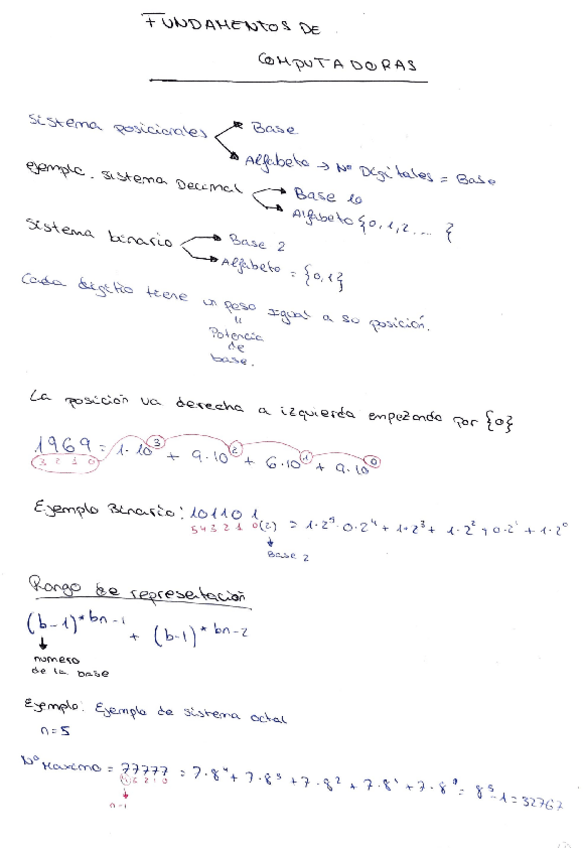 FUNDAMENTOS DE
COMPUTADORAS
Sistema posicionales → Base
→ Alfabeto → Nº Digitales = Base
ejemplo. Sistema Decimal → Base 10
→ Alfabeto {0,1,2,... {
Sistema binario → Base 2
→ Alfabeto = {0,1}
Cada digitio tiene un peso igual a su posición.
"
Potencia
de
base.
La posición va derecha a izquierda empezando por {0}
1969 = 1·10³ + 9·10² + 6·10¹ + 9·10⁰
3 2 1 0
Ejemplo Binario: 101101
5 4 3 2 1 0 (2) = 1·2⁵ 0·2⁴ + 1·2³ + 1·2² + 0·2¹ + 1·2⁰
Base 2
Rango de representación
(b-1)*bn-1 + (b-1)*bn-2
numero
de la base
Ejemplo: Ejemplo de sistema octal
n=5
Nº Maximo = 77777 = 7·8⁴ + 7·8³ + 7·8² + 7·8¹ + 7·8⁰ = 8⁵-1 = 32767
n-1